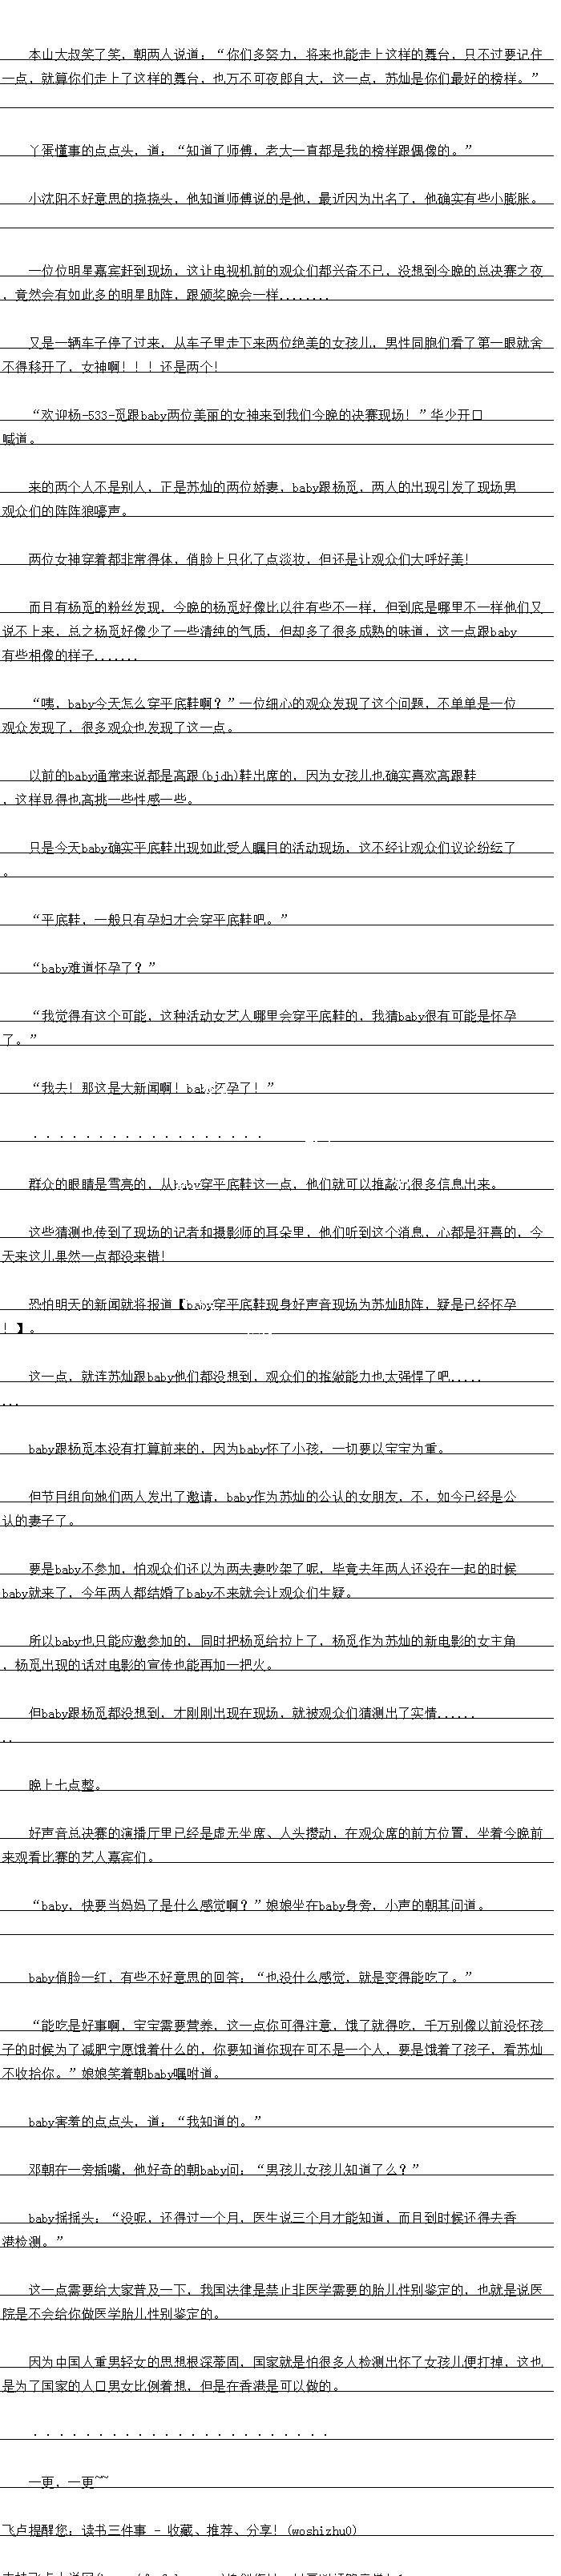 本山大叔笑了笑，朝两人说道：“你们多努力，将来也能走上这样的舞台，只不过要记住
一点，就算你们走上了这样的舞台，也万不可夜郎自大，这一点，苏灿是你们最好的榜样。”
丫蛋懂事的点点头，道：“知道了师傅，老大一直都是我的榜样跟偶像的。”
小沈阳不好意思的挠挠头，他知道师傅说的是他，最近因为出名了，他确实有些小膨胀。
一位位明星嘉宾赶到现场，这让电视机前的观众们都兴奋不已，没想到今晚的总决赛之夜
，竟然会有如此多的明星助阵，跟颁奖晚会一样........
又是一辆车子停了过来，从车子里走下来两位绝美的女孩儿，男性同胞们看了第一眼就舍
不得移开了，女神啊！！！还是两个！
“欢迎杨-533-觅跟baby两位美丽的女神来到我们今晚的决赛现场！”华少开口
喊道。
来的两个人不是别人，正是苏灿的两位娇妻，baby跟杨觅，两人的出现引发了现场男
观众们的阵阵狼嚎声。
两位女神穿着都非常得体，俏脸上只化了点淡妆，但还是让观众们大呼好美！
而且有杨觅的粉丝发现，今晚的杨觅好像比以往有些不一样，但到底是哪里不一样他们又
说不上来，总之杨觅好像少了一些清纯的气质，但却多了很多成熟的味道，这一点跟baby
有些相像的样子.......
“咦，baby今天怎么穿平底鞋啊？”一位细心的观众发现了这个问题，不单单是一位
观众发现了，很多观众也发现了这一点。
以前的baby通常来说都是高跟(bjdh)鞋出席的，因为女孩儿也确实喜欢高跟鞋
，这样显得也高挑一些性感一些。
只是今天baby确实平底鞋出现如此受人瞩目的活动现场，这不经让观众们议论纷纭了
。
“平底鞋，一般只有孕妇才会穿平底鞋吧。”
“baby难道怀孕了？”
“我觉得有这个可能，这种活动女艺人哪里会穿平底鞋的，我猜baby很有可能是怀孕
了。”
“我去！那这是大新闻啊！baby怀孕了！”
..................
群众的眼睛是雪亮的，从baby穿平底鞋这一点，他们就可以推敲出很多信息出来。
这些猜测也传到了现场的记者和摄影师的耳朵里，他们听到这个消息，心都是狂喜的，今
天来这儿果然一点都没来错！
恐怕明天的新闻就将报道【baby穿平底鞋现身好声音现场为苏灿助阵，疑是已经怀孕
！】。
这一点，就连苏灿跟baby他们都没想到，观众们的推敲能力也太强悍了吧.....
...
baby跟杨觅本没有打算前来的，因为baby怀了小孩，一切要以宝宝为重。
但节目组向她们两人发出了邀请，baby作为苏灿的公认的女朋友，不，如今已经是公
认的妻子了。
要是baby不参加，怕观众们还以为两夫妻吵架了呢，毕竟去年两人还没在一起的时候
baby就来了，今年两人都结婚了baby不来就会让观众们生疑。
所以baby也只能应邀参加的，同时把杨觅给拉上了，杨觅作为苏灿的新电影的女主角
，杨觅出现的话对电影的宣传也能再加一把火。
但baby跟杨觅都没想到，才刚刚出现在现场，就被观众们猜测出了实情......
..
晚上七点整。
好声音总决赛的演播厅里已经是虚无坐席、人头攒动，在观众席的前方位置，坐着今晚前
来观看比赛的艺人嘉宾们。
“baby，快要当妈妈了是什么感觉啊？”娘娘坐在baby身旁，小声的朝其问道。
baby俏脸一红，有些不好意思的回答：“也没什么感觉，就是变得能吃了。”
“能吃是好事啊，宝宝需要营养，这一点你可得注意，饿了就得吃，千万别像以前没怀孩
子的时候为了减肥宁愿饿着什么的，你要知道你现在可不是一个人，要是饿着了孩子，看苏灿
不收拾你。”娘娘笑着朝baby嘱咐道。
baby害羞的点点头，道：“我知道的。”
邓朝在一旁插嘴，他好奇的朝baby问：“男孩儿女孩儿知道了么？”
baby摇摇头：“没呢，还得过一个月，医生说三个月才能知道，而且到时候还得去香
港检测。”
这一点需要给大家普及一下，我国法律是禁止非医学需要的胎儿性别鉴定的，也就是说医
院是不会给你做医学胎儿性别鉴定的。
因为中国人重男轻女的思想根深蒂固，国家就是怕很多人检测出怀了女孩儿便打掉，这也
是为了国家的人口男女比例着想，但是在香港是可以做的。
.......................
一更，一更~~
飞卢提醒您：读书三件事 - 收藏、推荐、分享！(woshizhu0)